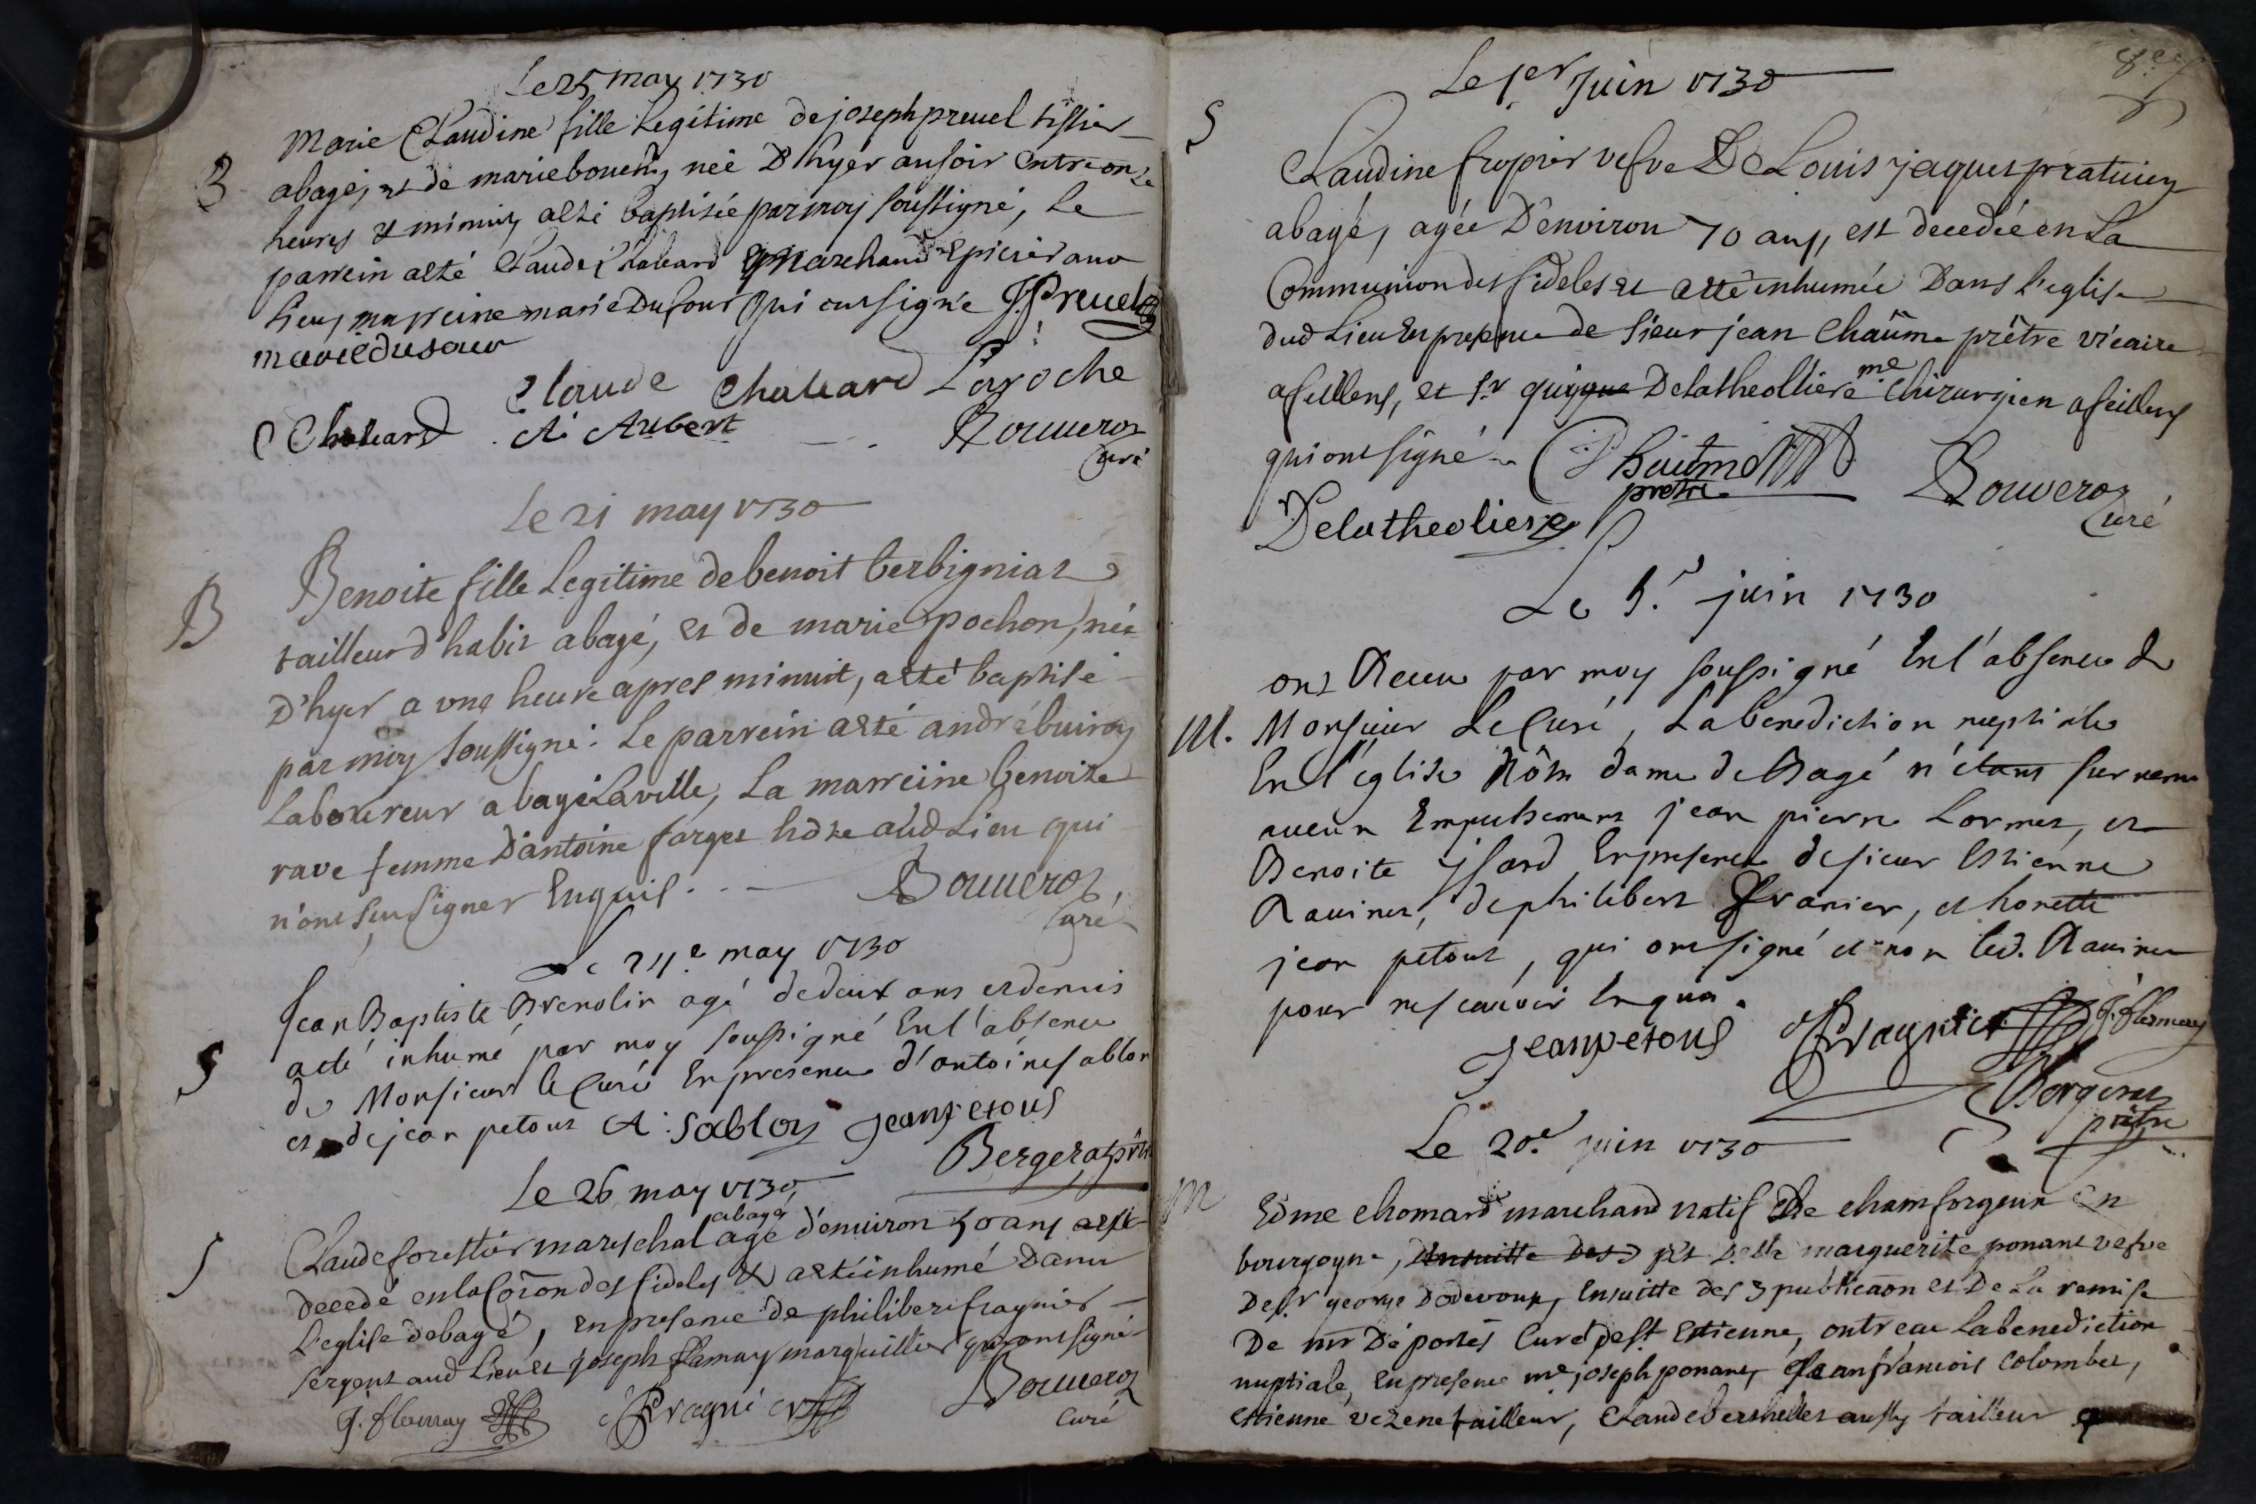 Le 25 may 1730
B
Marie Claudine fille Legitime de joseph preuel tissier
abagé, et de marie née D'hyer ausoir entre onze
heures et minuit aété baptisée parmoy soussigné, Le
parrein aeté Claude Chaleard marchand Epicier aud
Lieu, marreine marie Dufour qui ont signé J. Preuel
marie dufour
Claude Chaleard Laroche
C Chaleard A. Aubert Bouueroz
Curé
Le 21 may 1730
B
Benoite fille Legitime debenoit berbigniaz
tailleur d'habit abagé, et de marie pochon, née
D'hyer a une heure apres minuit, aeté baptisé
par moy soussigné. Le parrein aeté andré buiron
Laboureur a bagé Laville, La marreine benoite
rave femme D'antoine farges hôte audLieu qui
n'ont sçu signer Enquis. Bouueroz
Curé
Le 24e may 1730
S
Jean Baptiste Brenolin agé dedeux ans etdemis
aeté inhumé par moy soussigné En l'absence
de Monsieur le Curé En presence d'antoine sablon
et de jean petout A. Sablon Jean petout
Bergerat ptre
Le 26 may 1730
S
abagé
Claude forestier mareschal agé d'enuiron 50 ans
decedé en la Coion des fideles et aeté inhumé Dans
L'eglise de bagé, en presence de philibert fragnier
sergent aud Lieu et joseph flamay marguillier qui ont signé
J. flamay Fragnier Bouueroz
Curé
Le 1er Juin 1730
S
Claudine fropier vefve De Louis jaquet praticien
abagé, agée D'environ 70 ans, est decedée en La
Communion des fideles et aeté inhumée Dans l'eglise
dud Lieu En presence de sieur jean Chaûme prêtre vicaire
afeillens, et Sr Delatheolliere me Chirurgien afeillens
qui ont signé Chaume
prêtre Bouveroz
Delatheoliere Curé
Le 5.e juin 1730
M.
ont Receu par moy soussigné En l'absence de
Monsieur Le Curé, La benediction nuptiale
En l'église Nôtre dame de Bagé n'étant survenu
aucun Empechement jean pierre Lormet, et
Benoite jsard En presence de sieur Estienne
Rauinet, de philibert Franier, et honette
jean petout, qui ont signé et non led. Rauinet
pour ne scauoir Enquis.
Jean petout Fragnier J. flamay
Bergerat
prêtre
Le 20.e juin 1730
M
Edme chomard marchand natif De chamforgeux En
bourgogne, Ensuitte Des 3 et D.elle marguerite ponant vefve
De Sr george Dodevoux, Ensuitte des 3 publicaon et De La remise
De mr Déportes Curé De St. Estienne, ont reçu La benediction
nuptiale, En presence me joseph ponant, jean francois Colombet,
estienne vezene tailleur, Claude aussy tailleur